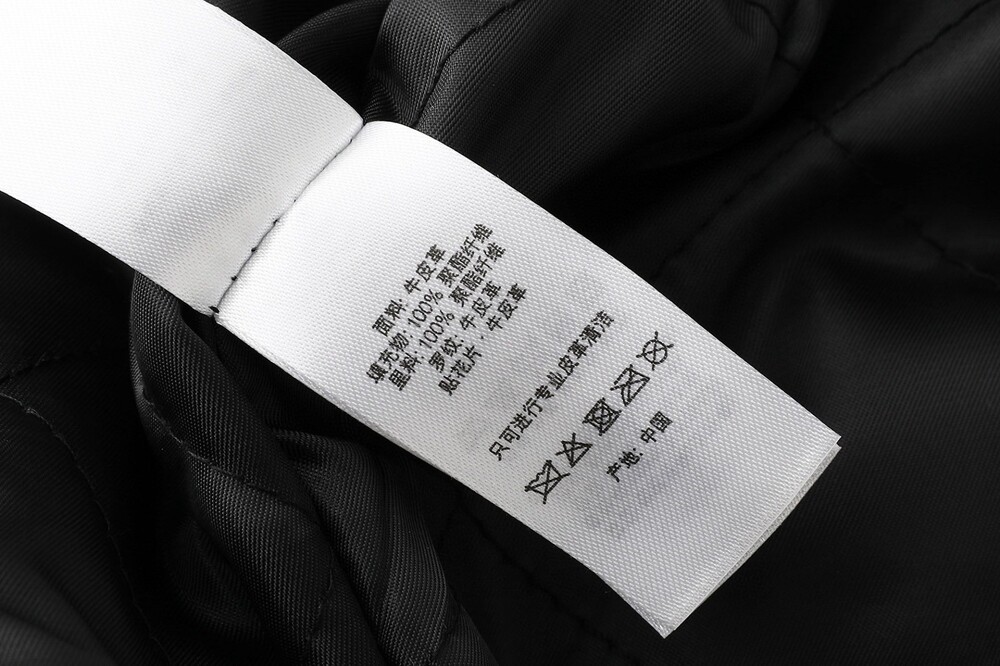 面料: 牛皮革
填充物: 100% 聚酯纤维
里料: 100% 聚酯纤维
罗纹: 牛皮革
贴花片: 牛皮革
只可进行专业皮革清洁
产地: 中国